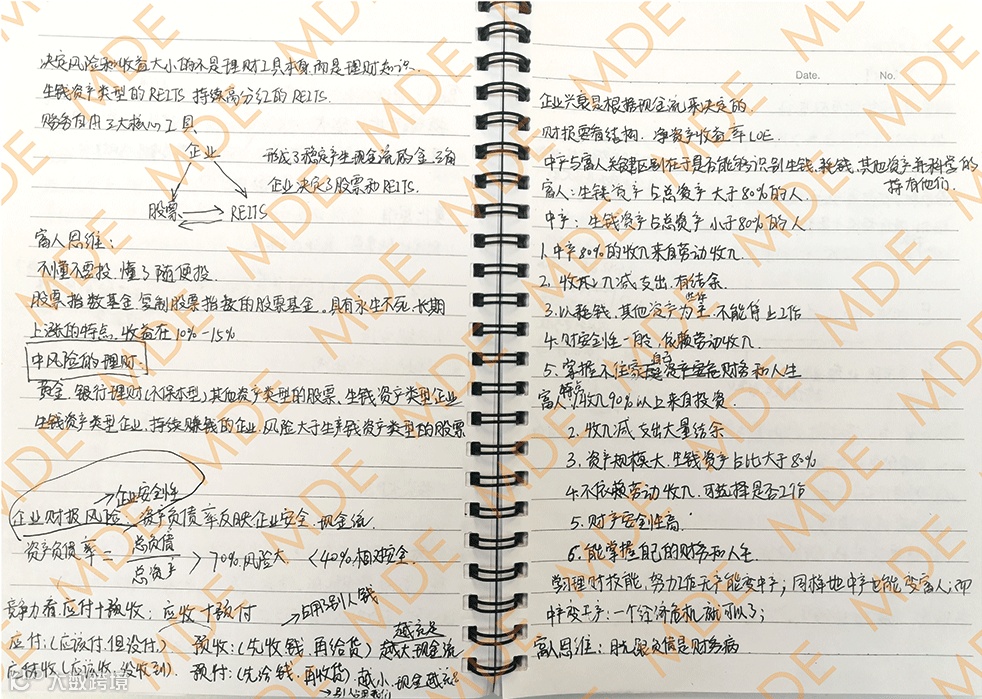 决定风险和收益大小的不是理财工具本身而是理财知识.
生钱资产类型的REITS 持续高分红的REITS.
财务自由三大核心工具
企业
股票
REITS
形成了稳定产生现金流的金三角
企业决定了股票和REITS.
富人思维:
不懂不要投.懂了随便投.
股票指数基金.复制股票指数的股票基金.具有永生不死.长期
上涨的特点.收益在10%-15%
中风险的理财.
黄金 银行理财(不保本型)其他资产类型的股票.生钱资产类型企业
生钱资产类型企业.持续赚钱的企业.风险大于生钱资产类型的股票
→企业安全性
企业财报风险.资产负债率反映企业安全.现金流
资产负债率=总负债/总资产 >70%风险大 <40%相对安全.
竞争力看应付+预收; 应收+预付 →占用别人钱
应付:(应该付.但没付.) 预收:(先收钱.再给货) 越大.现金流越充足
应收(应该收.没收到) 预付:(先给钱.再收货) 越小.现金越充
→别人占用我们
Date. No.
企业兴衰是根据现金流来决定的.
财报要看结构. 净资产收益率LOE.
中产与富人关键区别在于是否能够识别生钱、耗钱、其他资产并科学的
持有他们.
富人:生钱资产占总资产大于80%的人.
中产:生钱资产占总资产小于80%的人.
1.中产80%的收入来自劳动收入
2. 收入减支出.有结余
3.以耗钱.其他资产为主.不能停止工作
4.财安全性一般.依赖劳动收入.
5.掌握不住家财务和人生
富人特点:1.收入90%以上来自投资.
2. 收入减支出大量结余
3. 资产规模大.生钱资产占比大于80%
4.不依赖劳动收入.可选择是否工作
5. 财产安全性高
6.能掌握自己的财务和人生
学理财技能.努力工作无产能变中产,同样地中产也能变富人;而
中产变无产:一个经济危机就可以了;
富人思维:
MDE
大数跨境